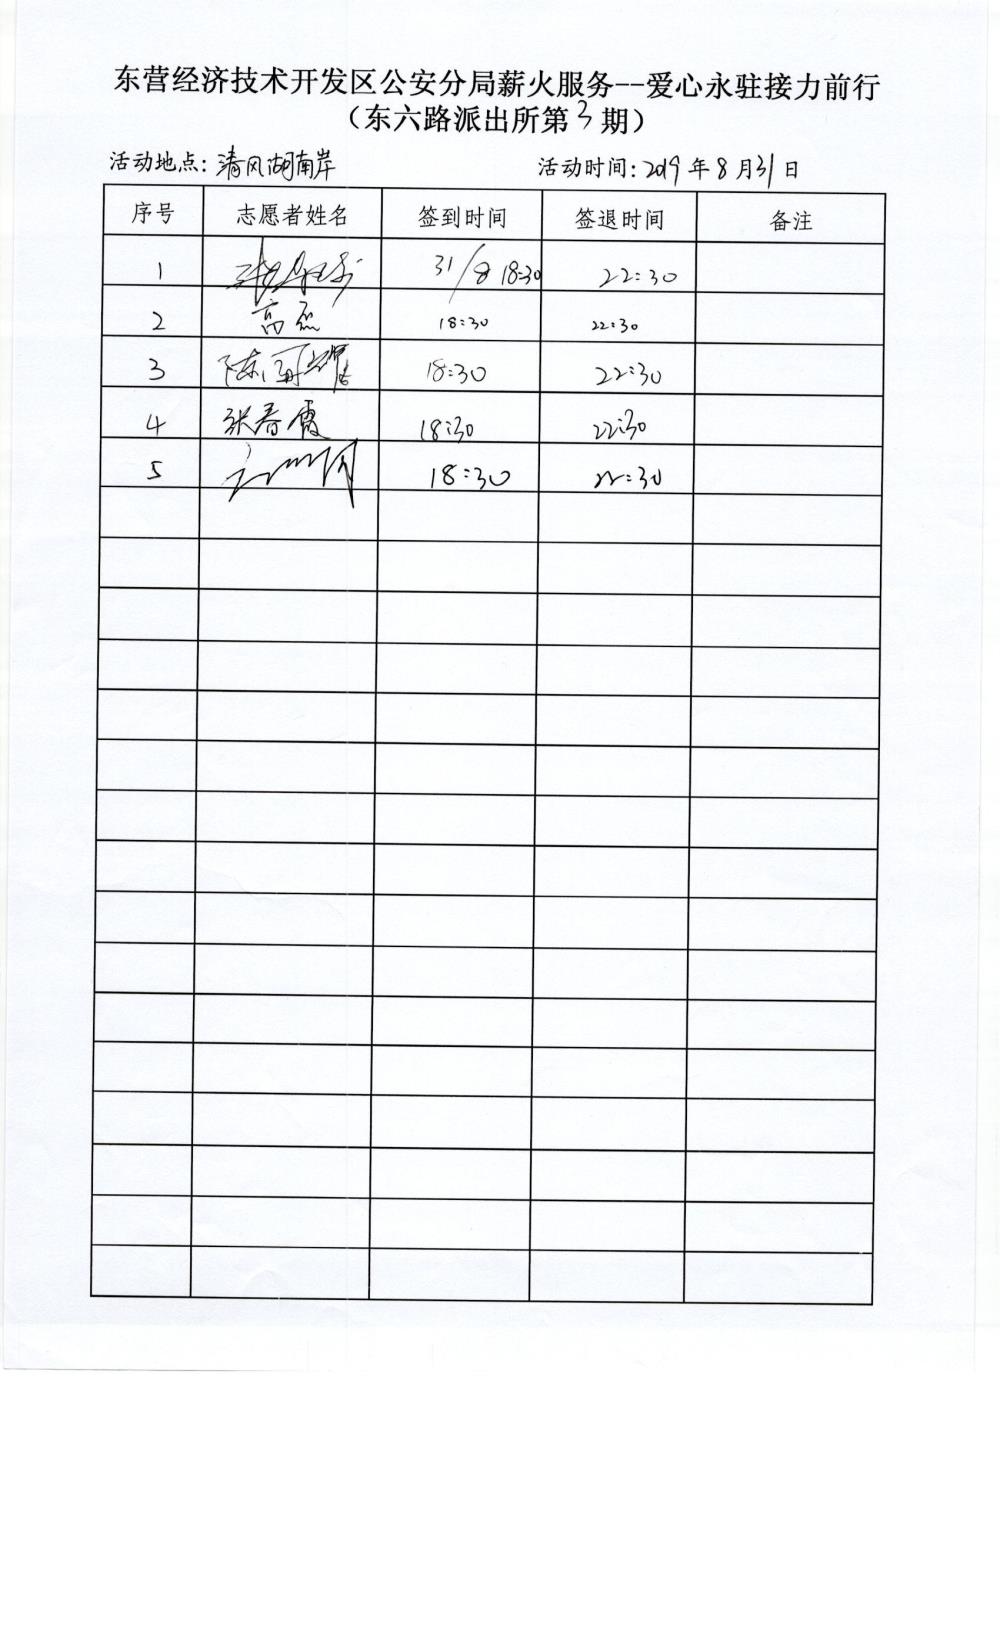 东营经济技术开发区公安分局薪火服务--爱心永驻接力前行
（东六路派出所第3期）
活动地点：清风湖南岸 活动时间：2019年8月31日
序号 志愿者姓名 签到时间 签退时间 备注
1 31/8 18:30 22:30
2 高磊 18:30 22:30
3 18:30 22:30
4 张春霞 18:30 22:30
5 18:30 22:30